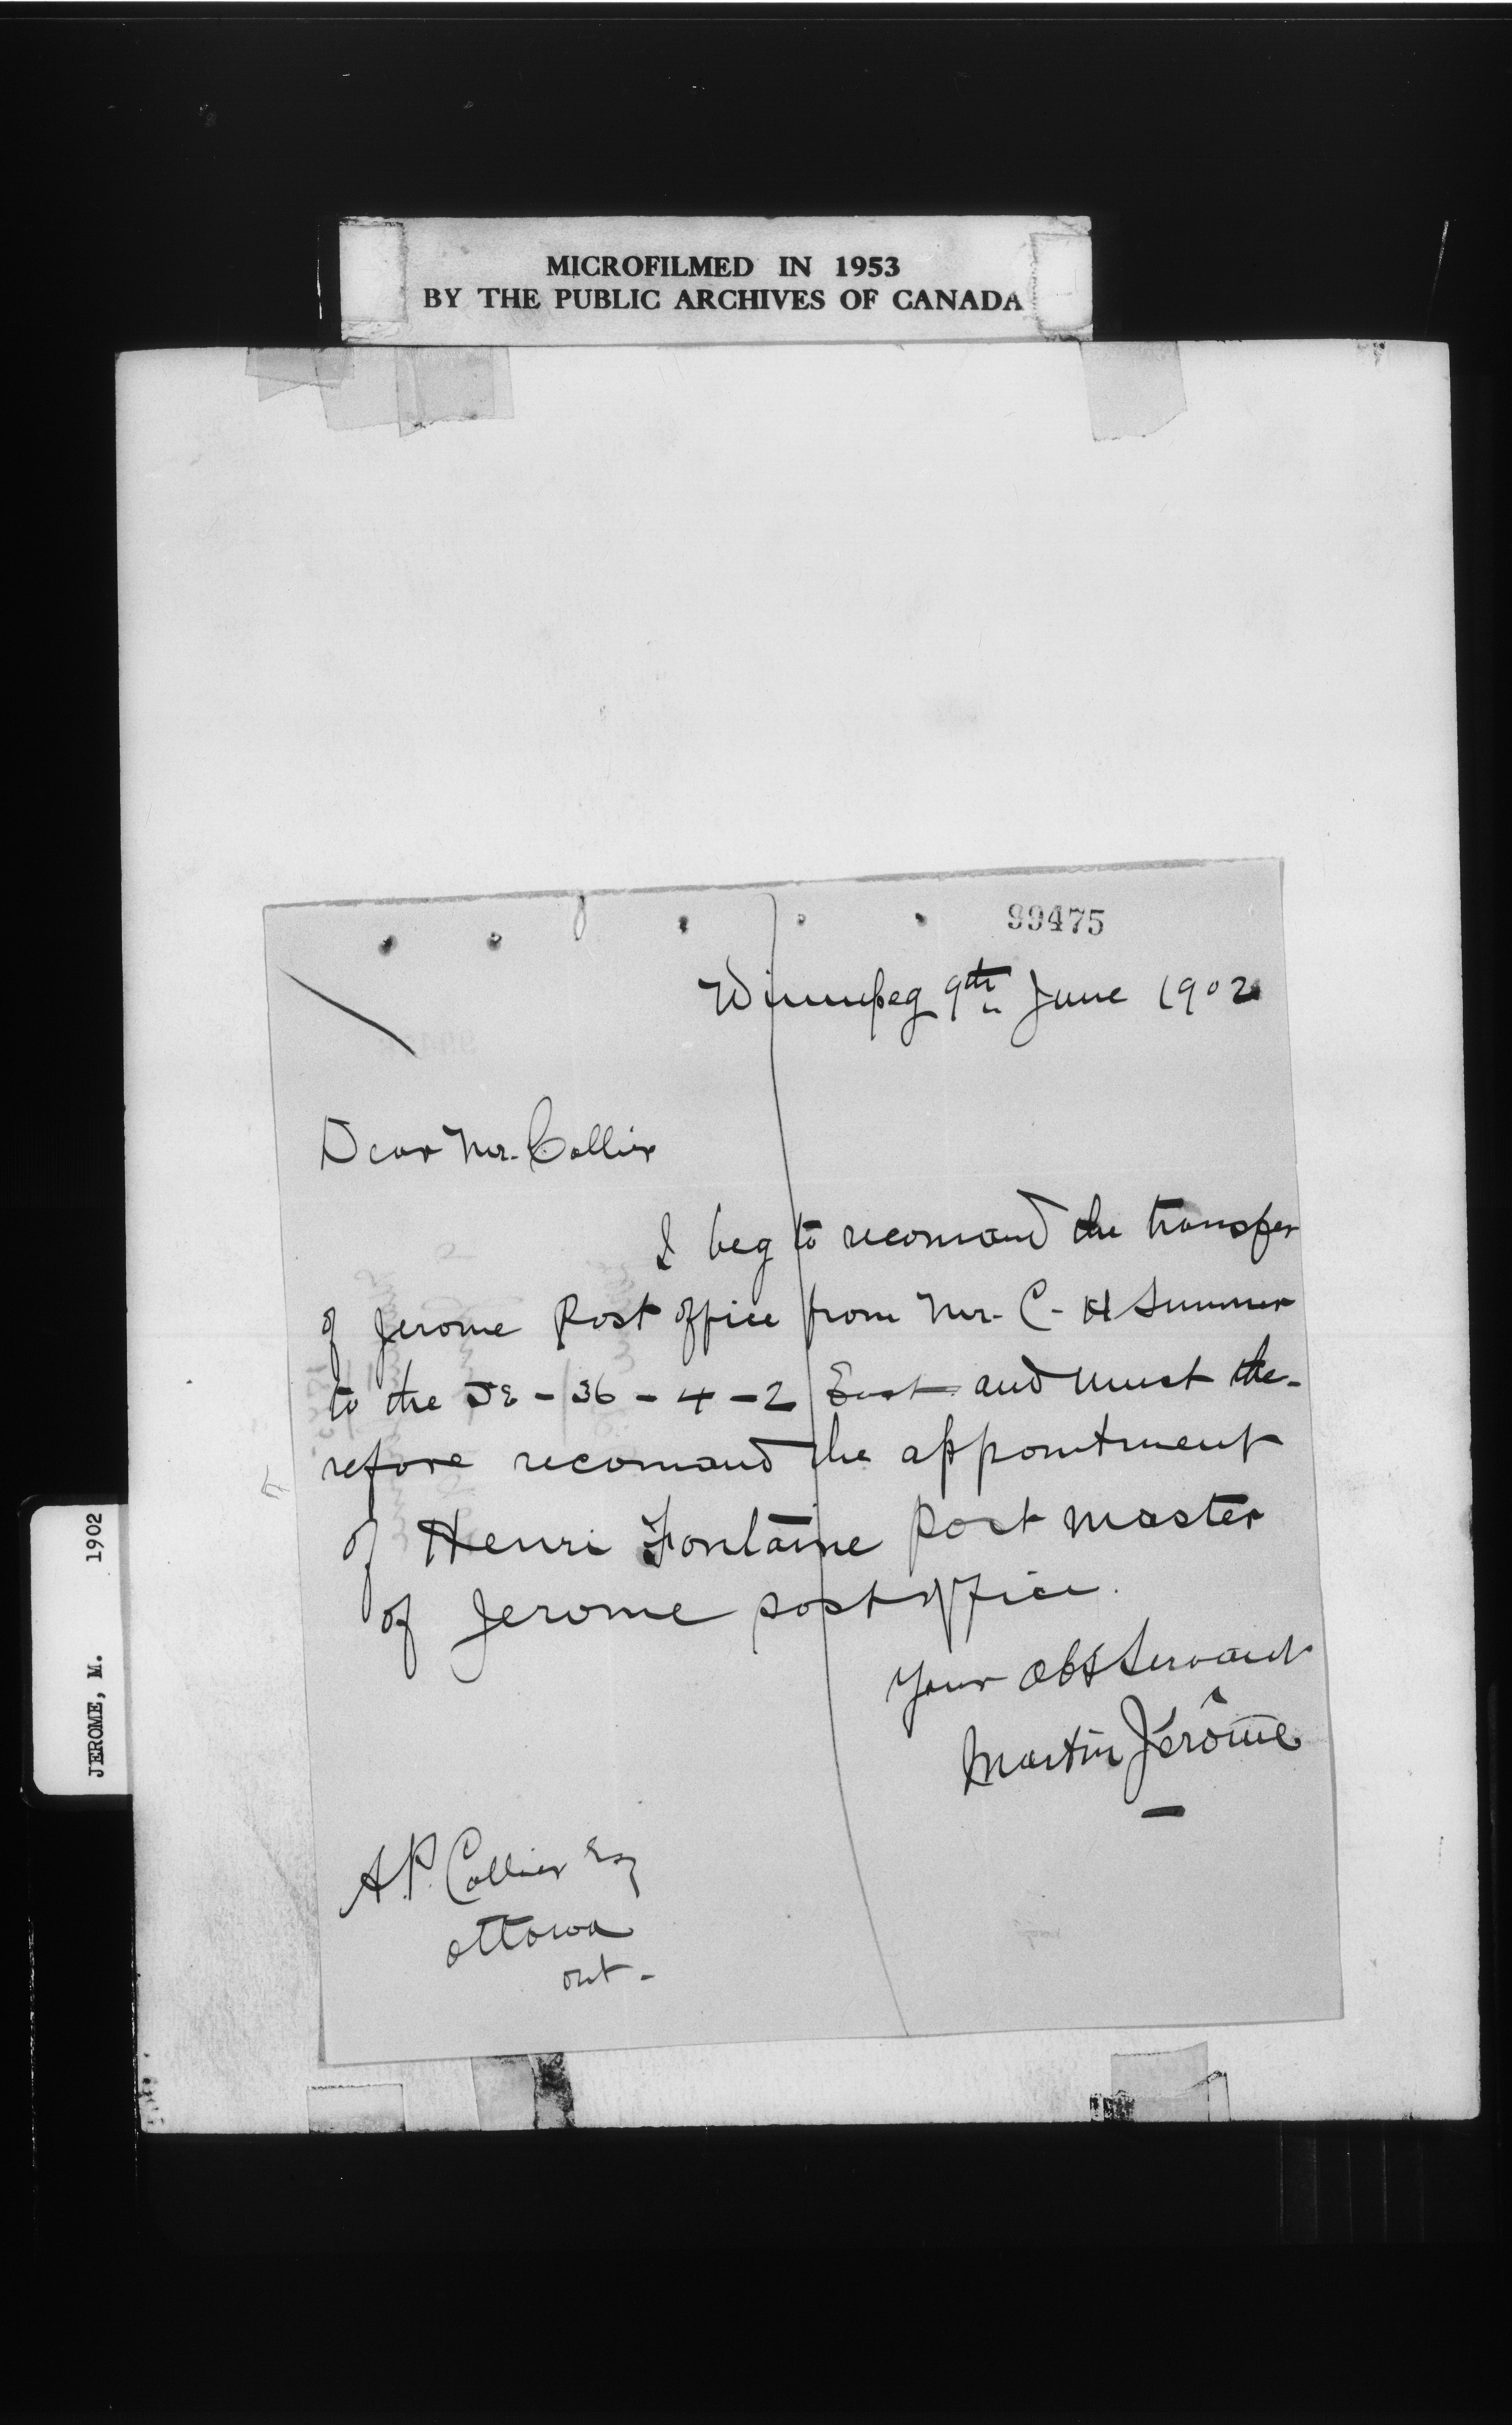 MICROFILMED IN 1953
BY THE PUBLIC ARCHIVES OF CANADA
99475
Winnipeg 9th June 1902
Dear Mr. Collier
I beg to recomand the transfer
of Jerome Post office from Mr. C-H Sumner
to the SE-36-4-2 East and must the-
refore recomand the appointment
of Henri Fontaine Post master
of Jerome post office.
Your obt servant
Martin Jérôme
A.P. Collier Esq
Ottawa
Ont-
JEROME, M. 1902